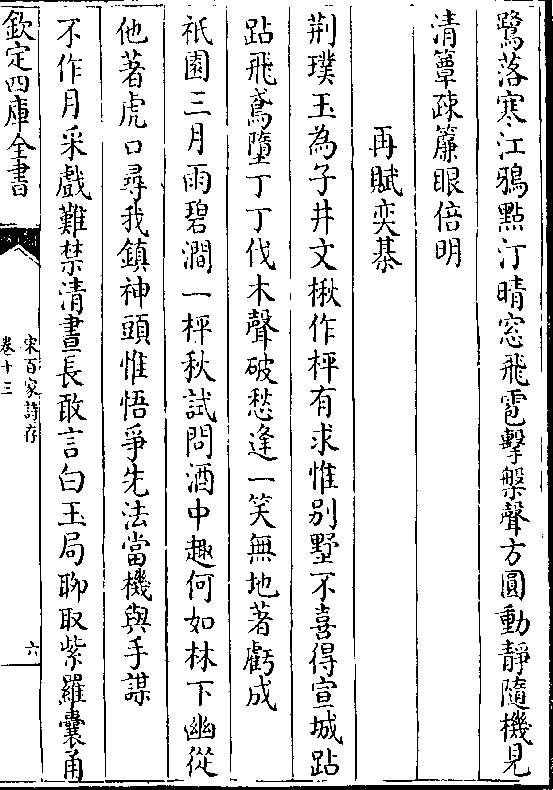 鷺落寒江鴉點汀晴窓飛雹擊槃聲方圓動靜隨機見
清簟疎簾眼倍明
再賦奕棊
荆璞玉為子井文楸作枰有求惟别墅不喜得宣城跕
跕飛鳶墮丁丁伐木聲破愁逢一笑無地著虧成
祇園三月雨碧澗一枰秋試問酒中趣何如林下幽從
他著虎口尋我鎮神頭惟悟爭先法當機與手謀
不作月采戲難禁清晝長敢言白玉局聊取紫羅囊甬
欽定四庫全書
宋百家詩存
卷十三
六